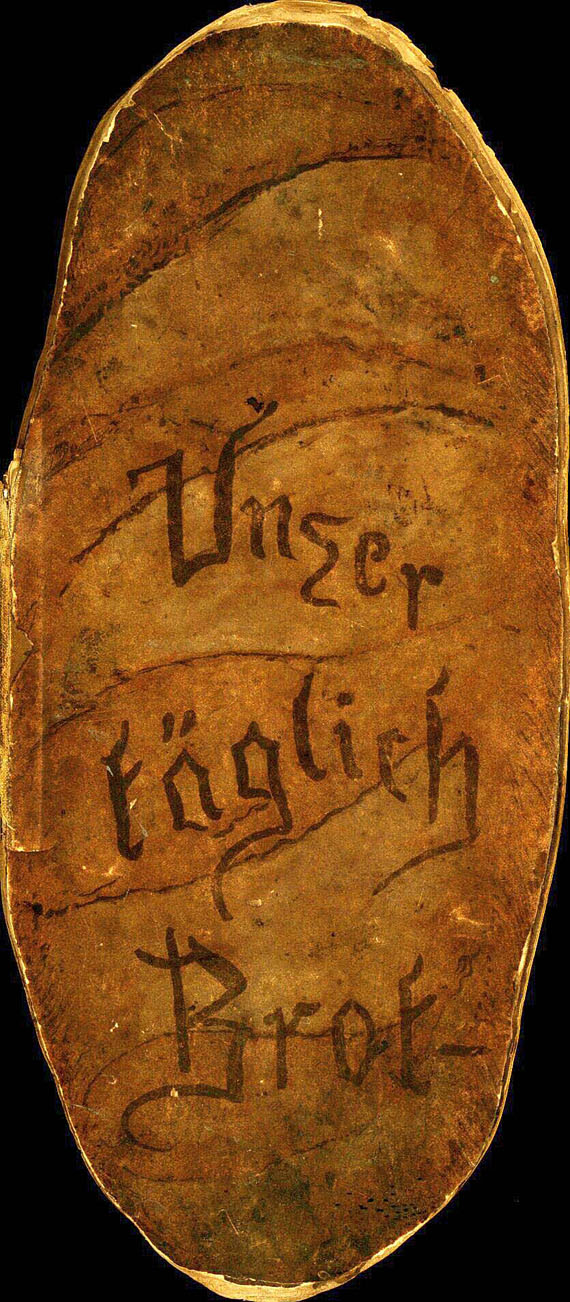 Unser
täglich
Brot-